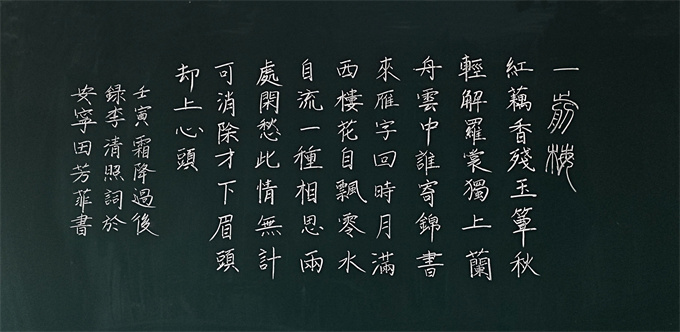 一剪梅
紅藕香殘玉簟秋
輕解羅裳獨上蘭
舟雲中誰寄錦書
來雁字回時月滿
西樓花自飄零水
自流一種相思兩
處閑愁此情無計
可消除才下眉頭
却上心頭
壬寅霜降過後
録李清照詞於
安寧田芳菲書